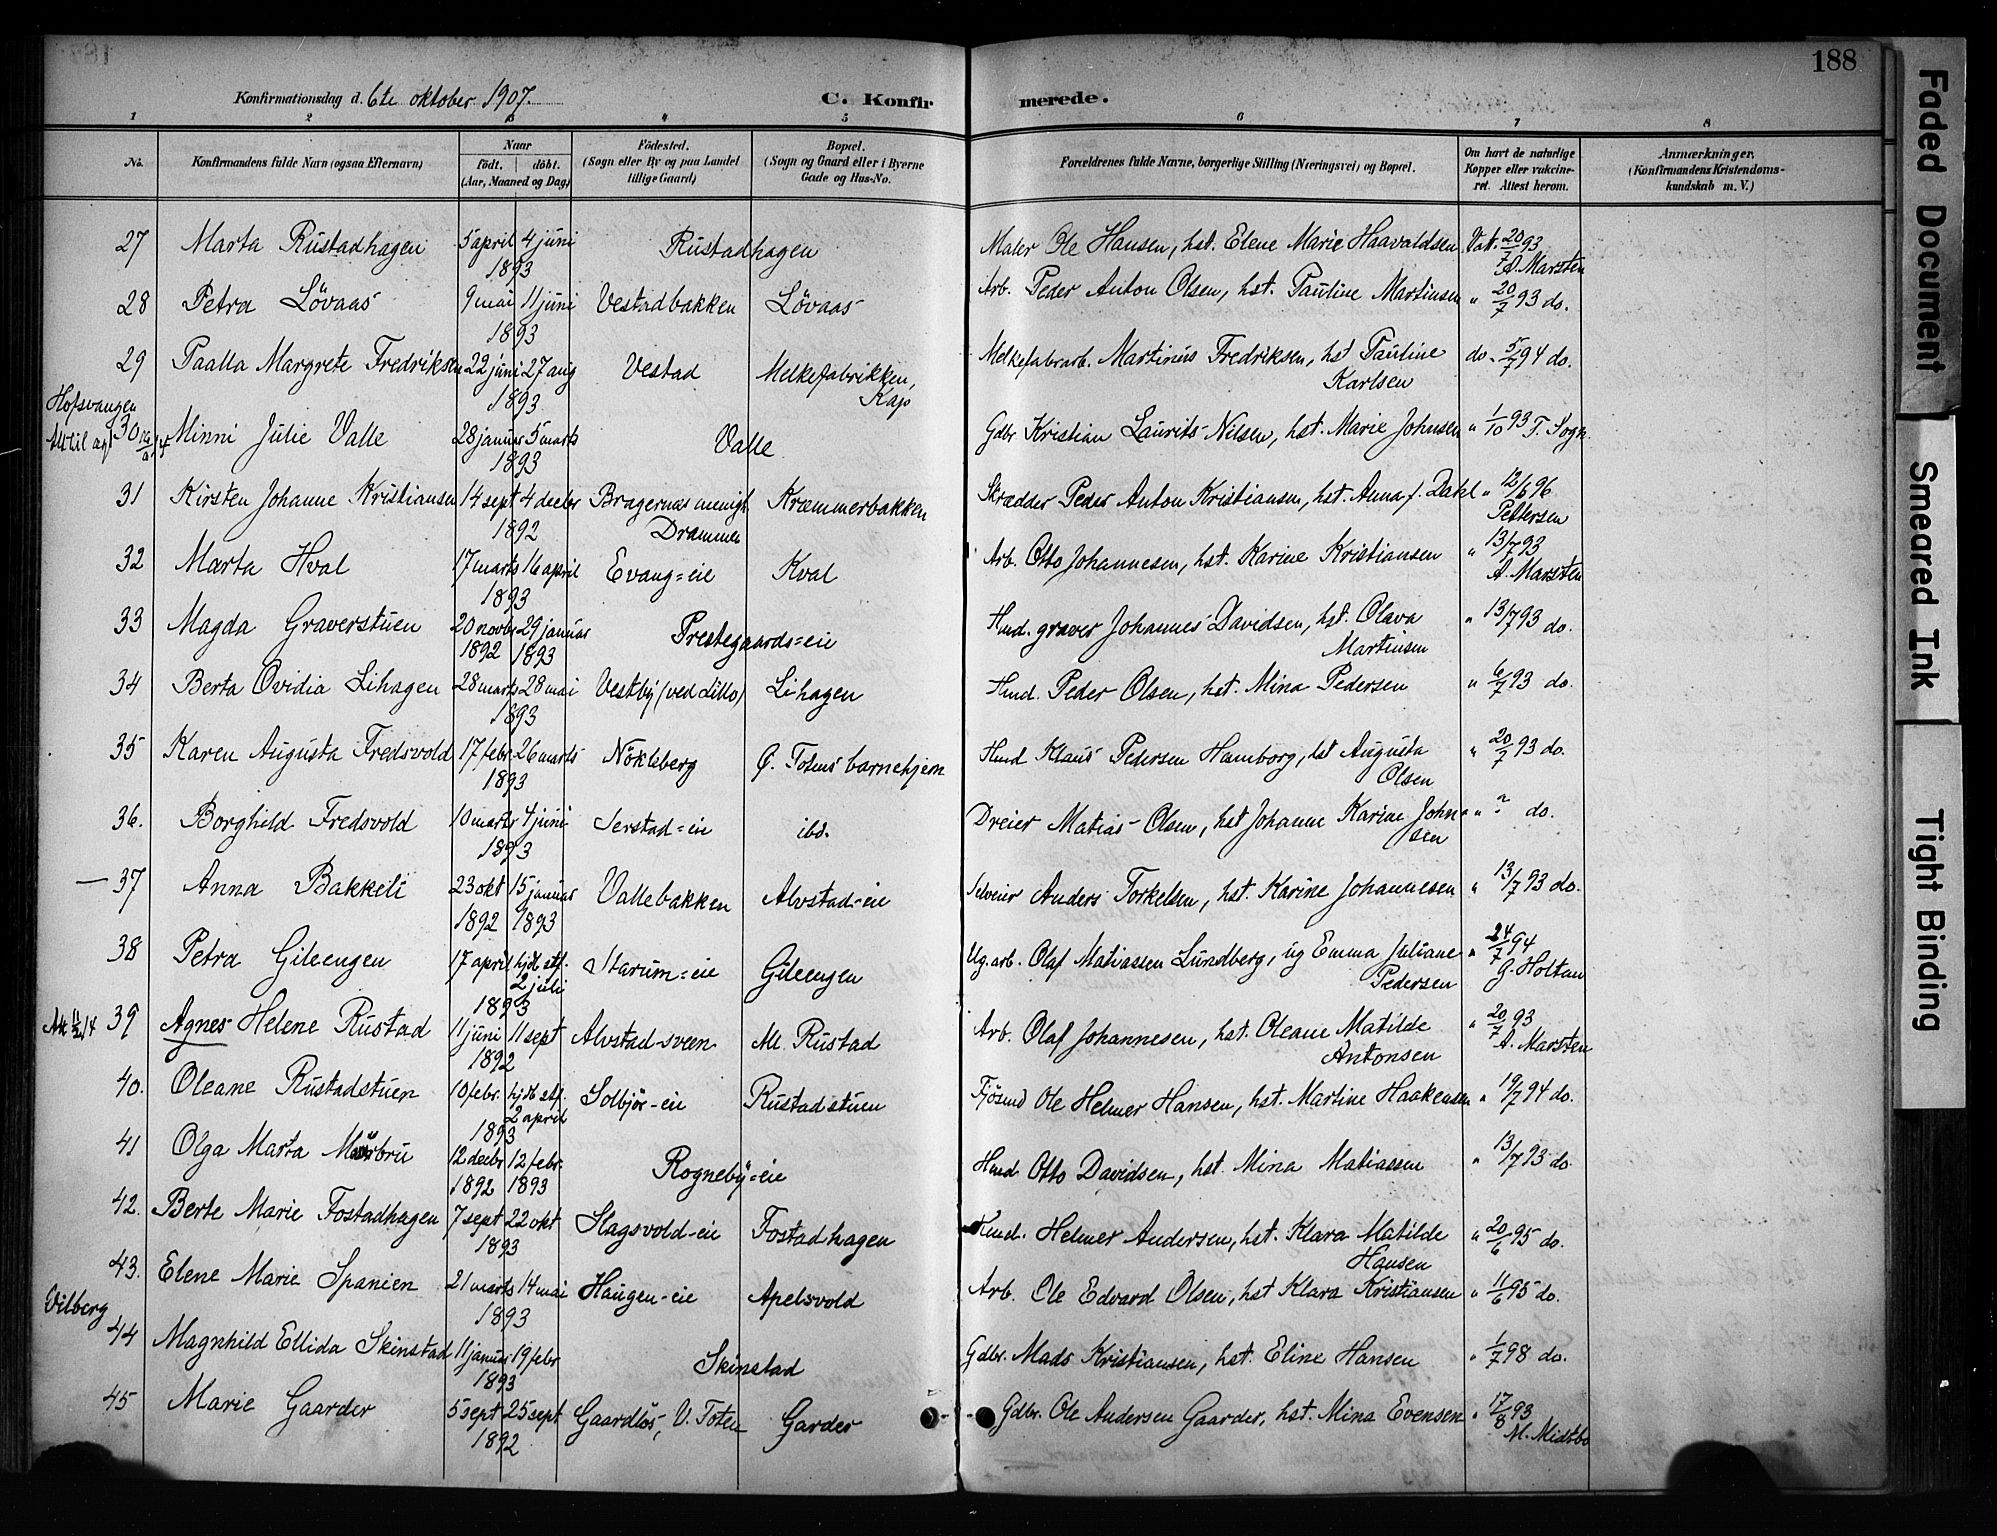 188
Konfirmationsdag d. 6te oktober 1907.
C. Konfirmerede.
1 2 3 4 5 6 7 8
No.
Konfirmandens fulde Navn (ogsaa Efternavn)
Naar
født. døbt.
(Aar, Maaned og Dag)
Fødested.
(Sogn eller By og paa Landet
tillige Gaard)
Bopæl.
(Sogn og Gaard eller i Byerne
Gade og Hus-No.
Forældrenes fulde Navne, borgerlige Stilling (Næringsvei) og Bopæl.
Om havt de naturlige
Kopper eller vakcine-
ret. Attest herom.
Anmærkninger,
(Konfirmandens Kristendoms-
kundskab m. V.)
27 Marta Rustadhagen 5 april 4 juni Rustadhagen Maler Ole Hansen, hst. Elene Marie Haavaldsen Vak. 20/7 93
1893 A. Marsten
28 Petra Løvaas 9 mai 11 juni Vestadbakken Løvaas Arb. Peder Anton Olsen, hst. Pauline Martinsen " 20/7 93 do.
1893
29 Paalla Margrete Fredriksen 22 juni 27 aug Vestad Melkefabrikken, Melkefabrarb. Martinus Fredriksen, hst Pauline do. 5/7 94 do.
1893 Kap Karlsen
Hofsvangen
30 Minni Julie Valle 28 januar 5 marts Valle Gdbr. Kristian Laurits Nilsen, hst. Marie Johnsen " 1/10 93 T. Sogn
1893
31 Kirsten Johanne Kristiansen 14 sept 4 decbr Bragernes menigh Kræmmerbakken Skrædder Peder Anton Kristiansen, hst. Anna f. Dahl " 12/6 96
1892 Drammen Pettersen
32 Marta Hval 17 marts 16 april Evang=eie Kval Arb. Otto Johannesen, hst. Karine Kristiansen " 13/7 93
1893 A. Marsten
33 Magda Graverstuen 20 novbr 29 januar Prestegaards=eie Hmd. graver Johannes Davidsen, hst. Olava " 13/7 93 do.
1892 1893 Martinsen
34 Berta Ovidia Lihagen 28 marts 28 mai Vestby (ved Lillo) Lihagen Hmd. Peder Olsen, hst. Mina Pedersen " 6/7 93 do.
1893
35 Karen Augusta Fredsvold 17 febr. 26 marts Nøkleberg Ø. Totens barnehjem Hmd Klaus Pedersen Hamborg, hst Augusta " 20/7 93 do.
1893 Olsen
36. Borghild Fredsvold 10 marts 4 juni Serstad=eie ibd. Dreier Matias Olsen, hst Johanne Karine John- " ? do.
1893 sen
— 37 Anna Bakkeli 23 okt 15 januar Vallebakken Alvstad-eie Selveier Anders Torkelsen, hst. Karine Johannesen " 13/7 93 do.
1892 1893
38 Petra Gileengen 17 april hjdb stf. Starum=eie Gileengen Ug. arb. Olaf Matiassen Lundberg, ug Emma Juliane " 24/7 94
2 juli Pedersen G. Holtan
1893
39 Agnes Helene Rustad 11 juni 11 sept Alvstad-sveen Ml. Rustad Arb. Olaf Johannesen, hst. Oleane Matilde " 20/7 93
1892 Antonsen A. Marsten
40. Oleane Rustadstuen 10 febr. hjdb stf. Solbjør-eie Rustadstuen Fjøsmd Ole Helmer Hansen, hst. Martine Haakensen " 19/7 94 do.
2 april
1893
41 Olga Marta Mørbru 12 decbr 12 febr. Rogneby=eie Hmd Otto Davidsen, hst. Mina Matiassen " 13/7 93 do.
1892 1893
42. Berte Marie Fostadhagen 7 sept 22 okt Slagsvold-eie Fostadhagen Hmd. Helmer Andersen, hst. Klara Matilde " 20/6 95 do.
1893 Hansen
43. Elene Marie Spanien 21 marts 14 mai Haugen-eie Apelsvold Arb. Ole Edvard Olsen, hst Klara Kristiansen " 11/6 95 do.
1893
Vilberg
44 Magnhild Ellida Skinstad 11 januar 19 febr. Skinstad Gdbr. Mads Kristiansen, hst. Eline Hansen " 1/7 98 do.
1893
45 Marie Gaarder 5 sept 25 sept. Gaardløs, V. Toten Garder Gdbr. Ole Andersen Gaarder, hst. Mina Evensen " 17/8 93
1892 M. Midtbø
Faded Document
Smeared Ink
Tight Binding